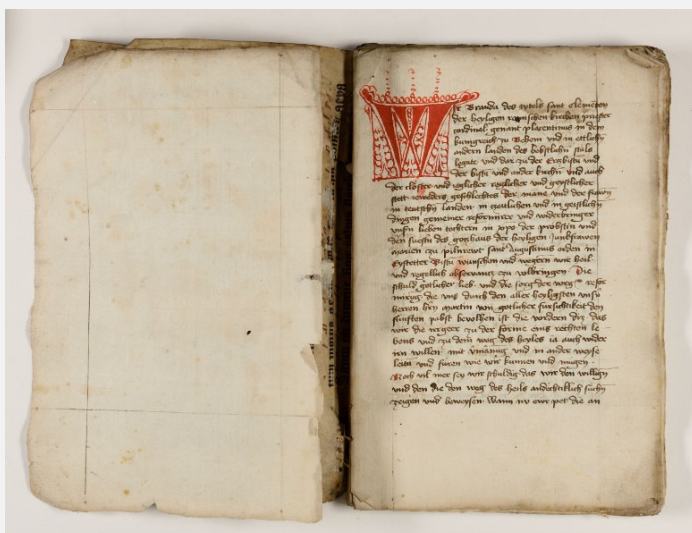 Wir Branda des tytels sant Clementen
der heyligen romischen kirchen priester
cardinal genant placentinus in dem
kunigreich zu Behem vnd in ettlichen
andern landen des bebstlichen stuls
legate vnd dar zu der Erzbistu vnd
der bistu vnd ander kirchn vnd auch
der closter vnd yglicher regelicher vnd geystlicher
stett yetweders geschlechtes der manne vnd der frawen
in teutschn landen in zeitlichen vnd in geistlichn
dingen gemeiner reformirer vnd widerbringer
vnsn lieben tochtern in xpo der probstin vnd
den swestn des gozhaus der heyligen Junkfrawen
marien zu pilnrewt sant Augustinus orden in
Eysteter Bistu wunschen vnd wegern wir heil
vnd regellich observancz czu volbringen Die
schuld gotlicher lieb vnd die sorg der
die vns durch den aller heyligsten vnsn
herren hrn martin von gotlicher fursichtikeit den
funften pabst bevolhen ist die vordern diz das
wir die zu der forme eins rechten le
bens vnd zu dem weg des heyles ia auch wider
irn willen mit vnd in ander weyse
leiten vnd furen wie wir kunnen vnd mugen
Noch vil mer sey wir schuldig das wir den willign
vnd den die den weg des heils andechtiklich suchn
zeigen vnd beweysen Wann nv ewr pet die an